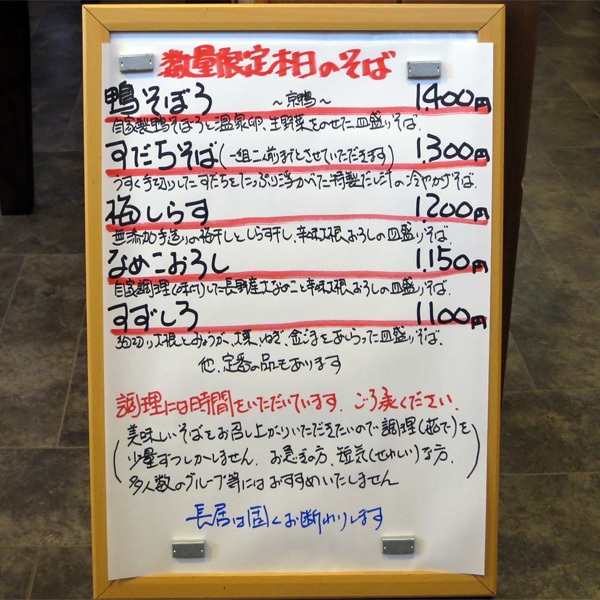 数量限定本日のそば
鴨そぼろ ～京鴨～ 1.400円
自家製鴨そぼろと温泉卵、生野菜をのせた皿盛りそば.
すだちそば(一組二人前までとさせていただきます) 1.300円
うすく手切りしたすだちをたっぷり浮かべた特製だし汁の冷やかけそば.
梅しらす 1.200円
無添加手造りの梅干しとしらす干し、辛味大根おろしの皿盛りそば.
なめこおろし 1.150円
自家調理(味付け)した長野産大なめこと辛味大根おろしの皿盛りそば.
すずしろ 1100円
細切り大根とみょうが、大葉、ねぎ、金ごまをあしらった皿盛りそば.
他、定番の品もあります
調理にお時間をいただいています. ご了承ください.
(美味しいそばをお召し上がりいただきたいので調理(茹で)を
少量ずつしかしません. お急ぎの方、短気(せわしい)な方、
多人数のグループ等にはおすすめいたしません)
長居は固くお断わりします